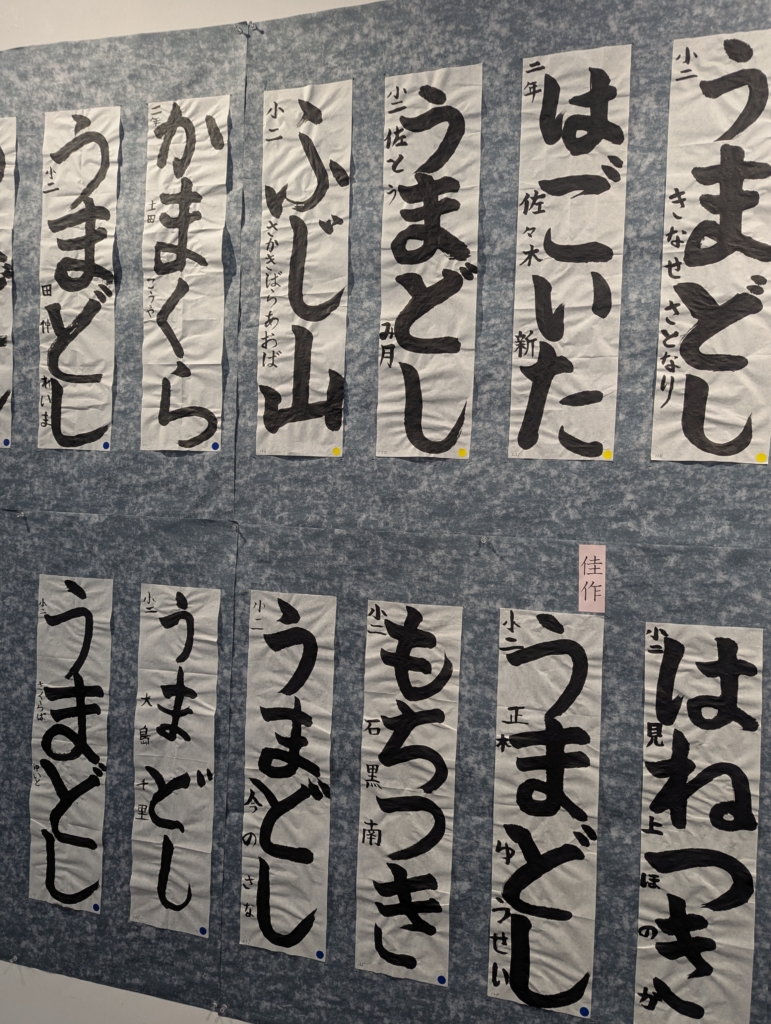 うまどし
小二
きなせ さとなり
はごいた
二年
佐々木 新
うまどし
小二
佐とう み月
ふじ山
小二
さかきばらあおば
かまくら
二年
土田 ごうや
うまどし
小二
れいま
佳作
はねつき
小二
見上 ほのか
うまどし
小二
正木 ゆうせい
もちつき
小二
石黒 南
うまどし
小二
今の さな
うまどし
小二
大島 千里
うまどし
小二
さくらば ゆいと